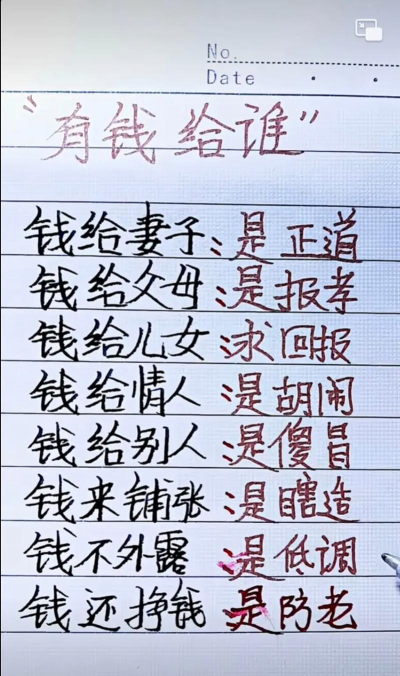 No.
Date
“有钱给谁”
钱给妻子:是正道
钱给父母:是报孝
钱给儿女:求回报
钱给情人:是胡闹
钱给别人:是傻冒
钱来铺张:是瞎造
钱不外露:是低调
钱还挣钱:是防老